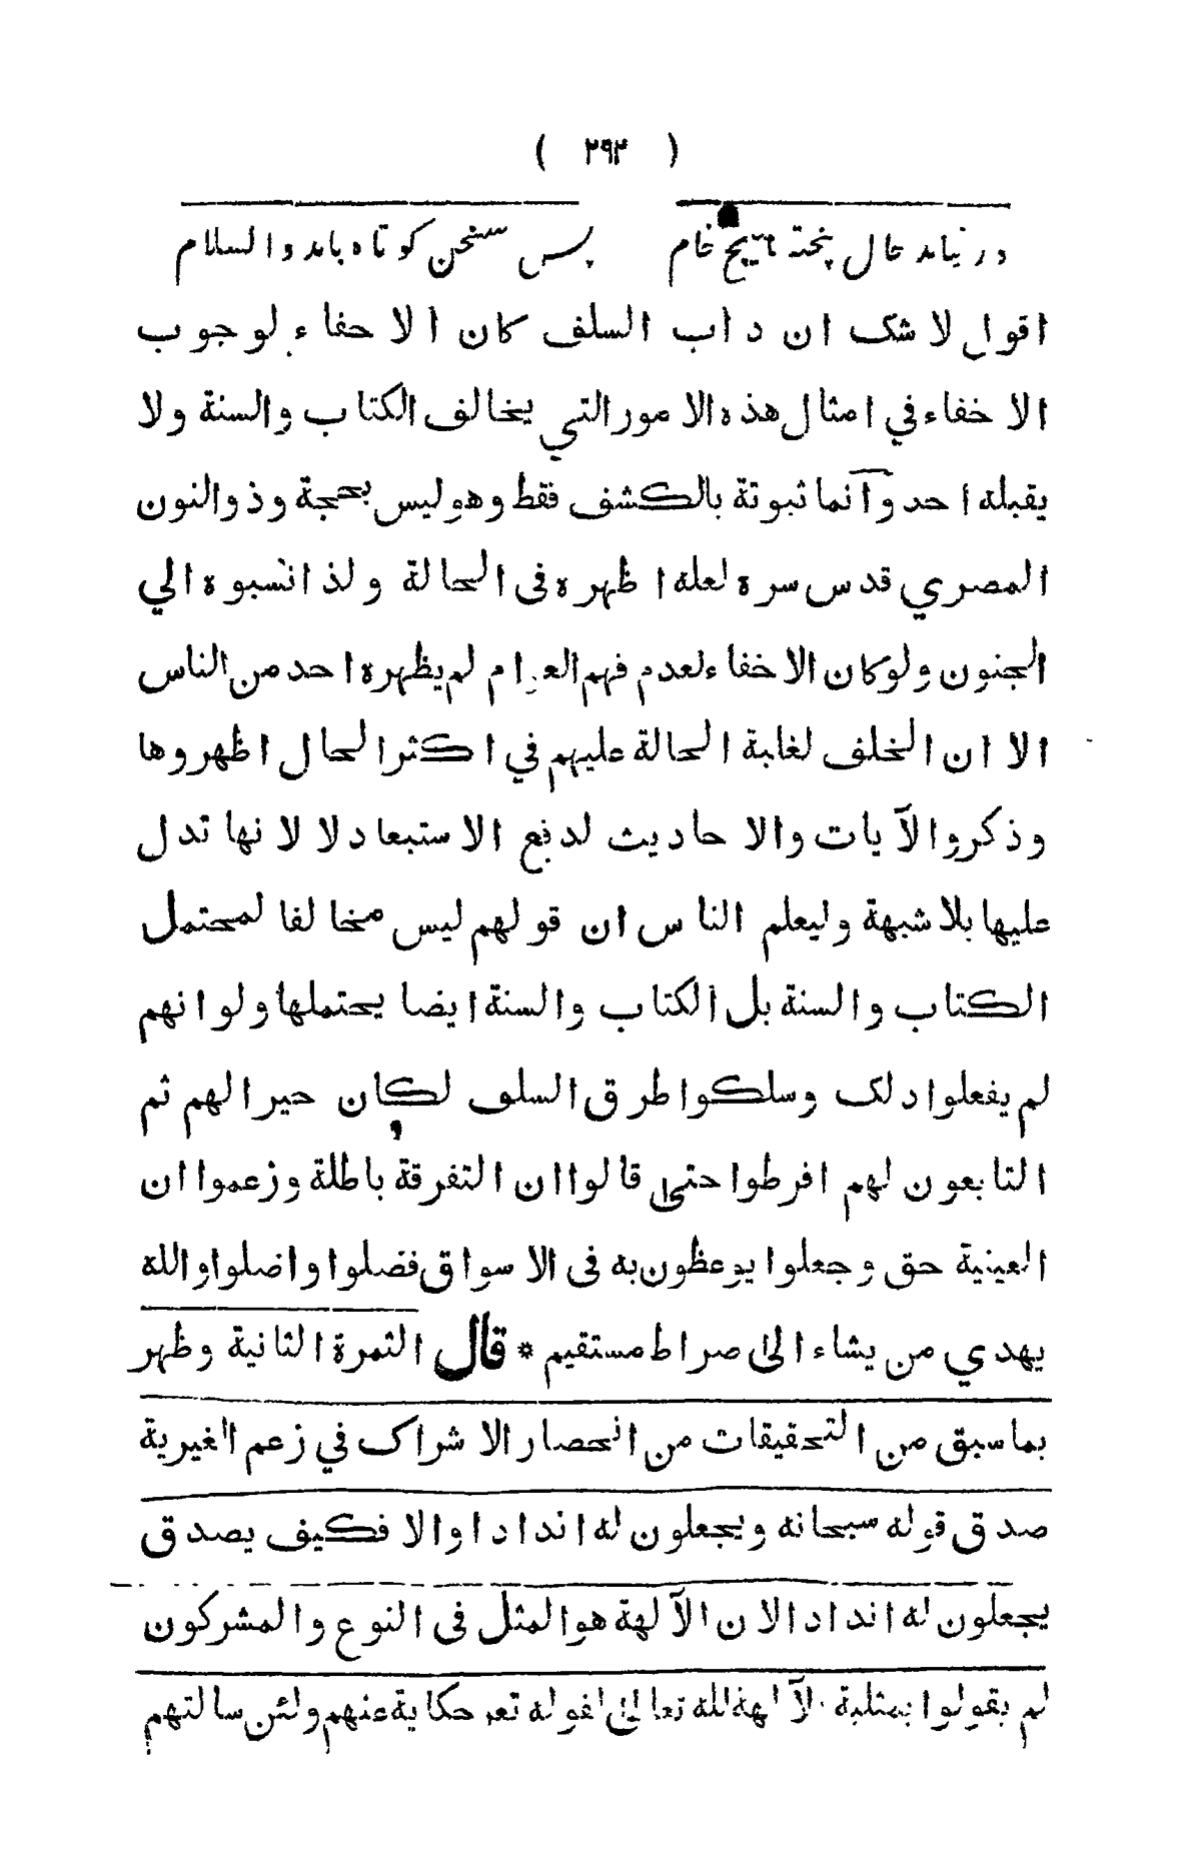 ( ٢٩٢ )
در نیابد حال پخته هیچ خام پس سخن کوتاه باید والسلام
اقول لا شك ان داب السلف كان الاخفاء لوجوب
الاخفاء في امثال هذه الامور التي يخالف الكتاب والسنة ولا
يقبله احد وانما ثبوتة بالكشف فقط وهو ليس بحجة وذوالنون
المصري قدس سره لعله اظهره فى الحالة ولذا انسبوه الي
الجنون ولوكان الاخفاء لعدم فهم العوام لم يظهره احد من الناس
الا ان الخلف لغلبة الحالة عليهم في اكثر الحال اظهروها
وذكروا الآيات والاحاديث لدفع الاستبعاد لا لانها تدل
عليها بلا شبهة وليعلم الناس ان قولهم ليس مخالفا لمحتمل
الكتاب والسنة بل الكتاب والسنة ايضا يحتملها ولو انهم
لم يفعلوا ذلك وسلكوا طرق السلف لكان خيرا لهم ثم
التابعون لهم افرطوا حتى قالوا ان التفرقة باطلة وزعموا ان
العينية حق وجعلوا يوعظون به فى الاسواق فضلوا واضلوا والله
يهدي من يشاء الى صراط مستقيم * قال الثمرة الثانية وظهر
بما سبق من التحقيقات من انحصار الاشراك في زعم الغيرية
صدق قوله سبحانه ويجعلون له اندادا والا فكيف يصدق
يجعلون له اندادا لان الآلهة هو المثل فى النوع والمشركون
لم يقولوا بمثلية الآلهة لله تعالى لقوله تعم حكاية عنهم ولئن سالتهم